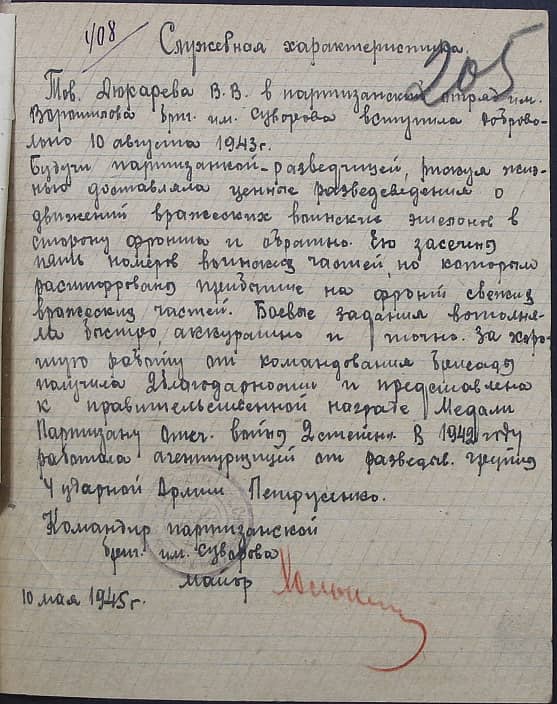 1/08
205
Служебная характеристика.
Тов. Дюкарева В.В. в партизанский отряд им.
Ворошилова бриг. им. Суворова вступила доброво-
льно 10 августа 1943г.
Будучи партизанкой-разведчицей, рискуя жиз-
нью доставляла ценные разведсведения о
движений вражеских воинских эшелонов в
сторону фронта и обратно. Ею засечено
пять номеров воинских частей, по которым
расшифровано прибытие на фронт свежих
вражеских частей. Боевые задания выполня-
ла быстро, аккуратно и точно. За хоро-
шую работу от командования бригады
получила 2 благодарности и представлена
к правительственной награде Медали
Партизану отеч. войны 2 степени. В 1942 году
работала агентурщицей от разведыв. группы
4 ударной Армии Петрусенко.
Командир партизанской
бриг. им. Суворова
майор
10 мая 1945г.